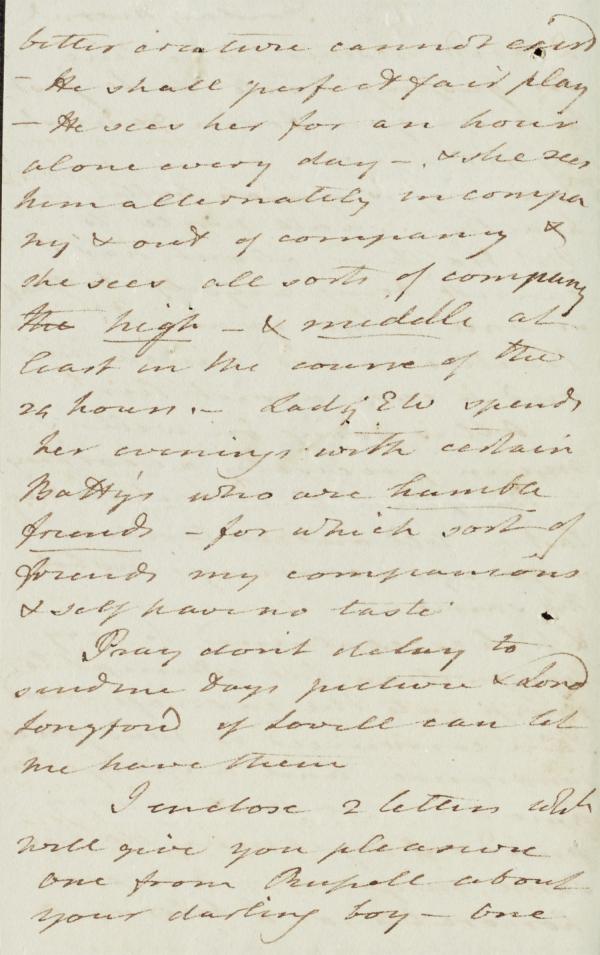 better creature cannot exist
- He shall perfect fair play
- He sees her for an hour
alone every day - & she sees
him alternately in compa
ny & out of company &
she sees all sorts of company
the high - & middle at
least in the course of the
24 hours. - Lady EW spends
her evenings with certain
Battys who are humble
friends - for which sort of
friends my companions
& self have no taste
Pray don't delay to
send me Days picture & Lord
Longford if Lovell can let
me have them
I enclose 2 letters which
will give you pleasure
one from Russell about
your darling boy - One